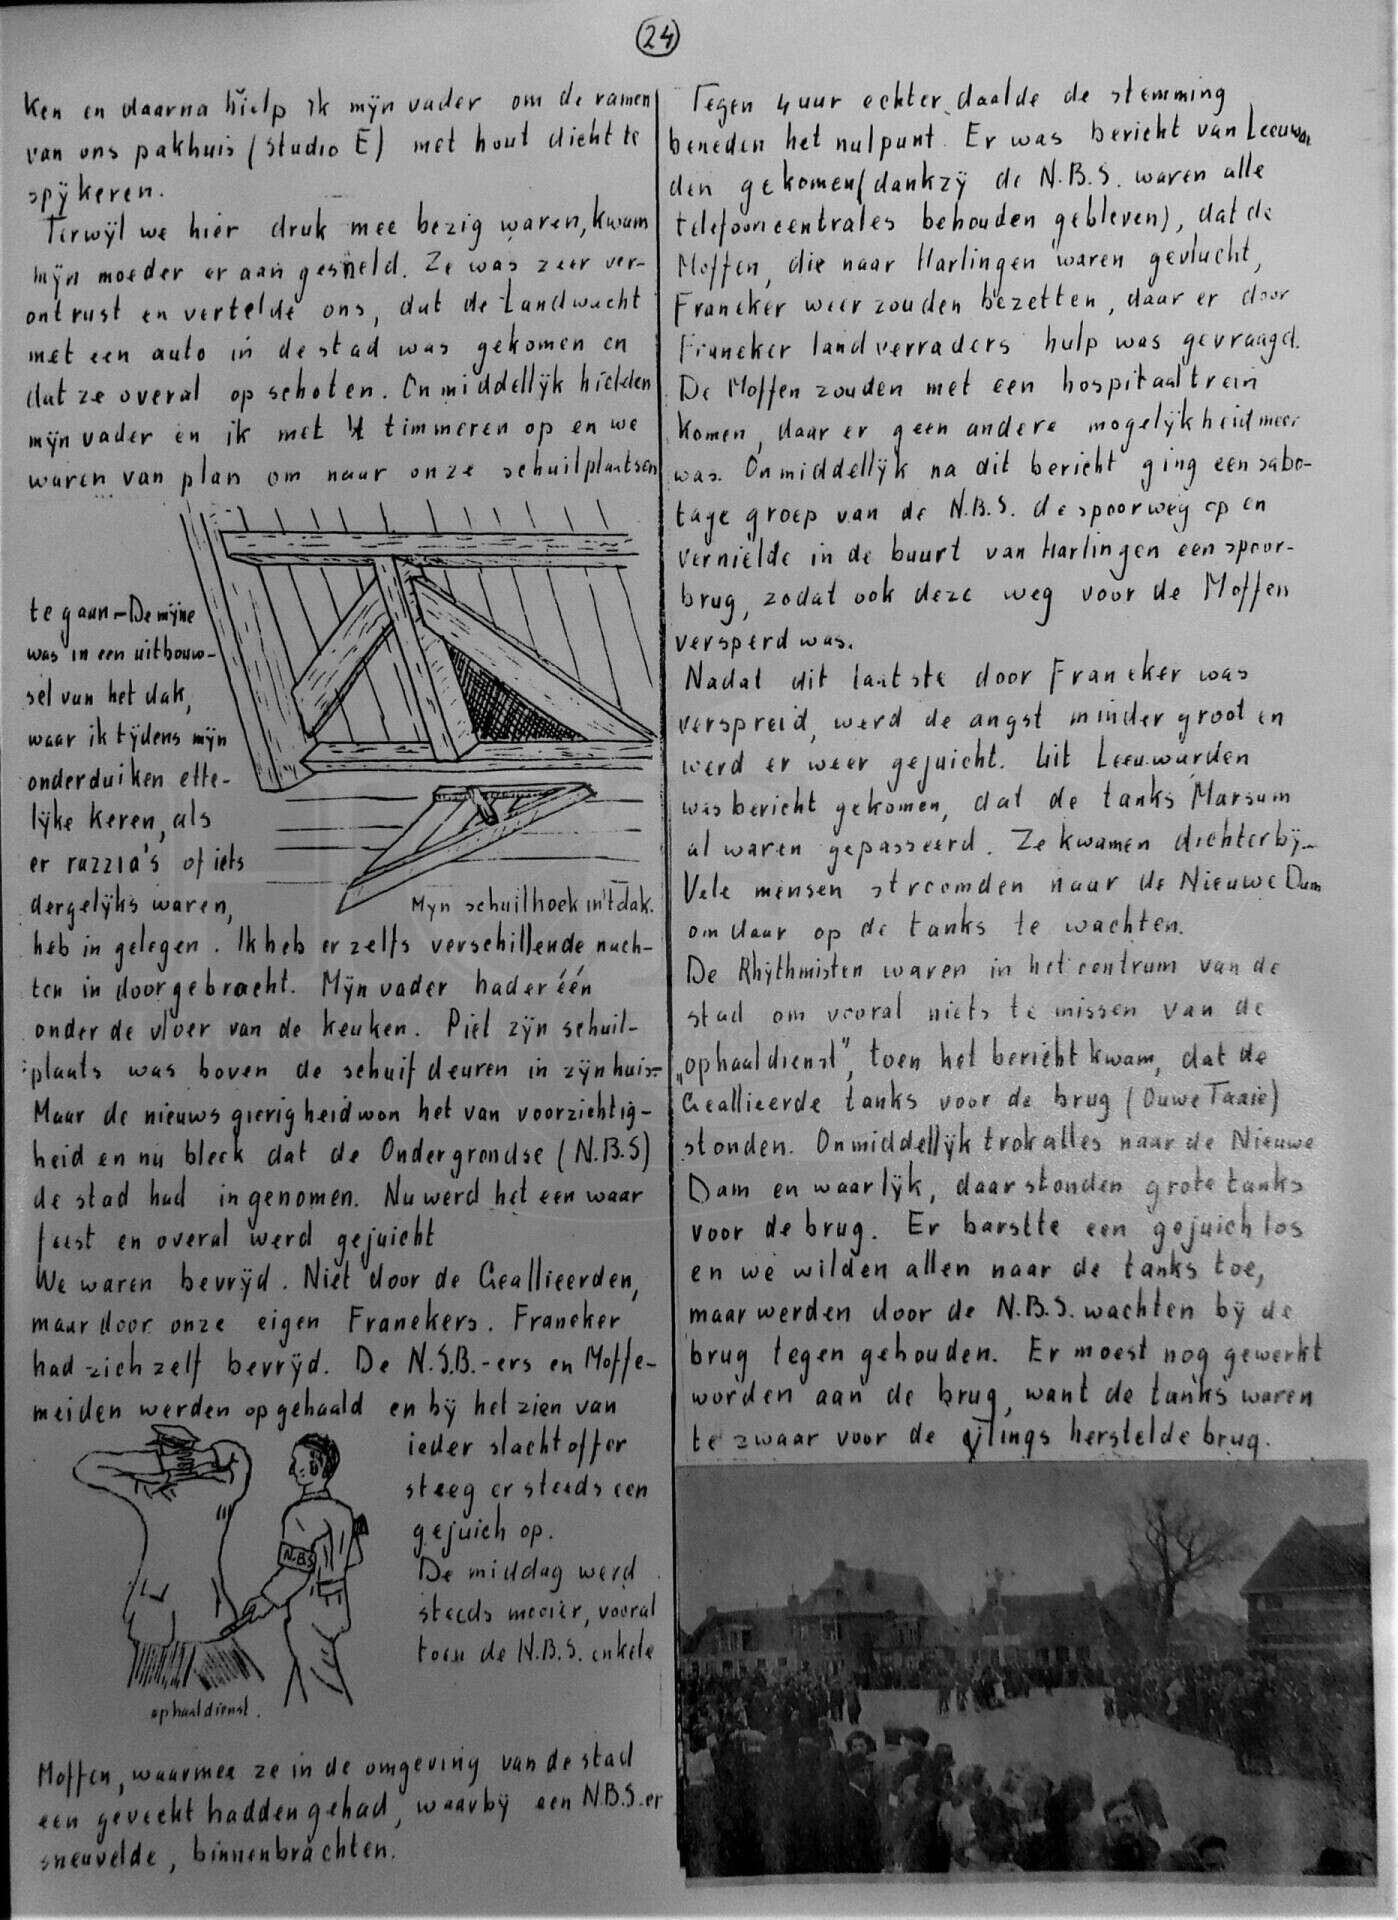 24
ken en daarna hielp ik mijn vader om de ramen
van ons pakhuis (Studio E) met hout dicht te
spijkeren.
Terwijl we hier druk mee bezig waren, kwam
mijn moeder er aan gesneld. Ze was zeer ver-
ontrust en vertelde ons, dat de Landwacht
met een auto in de stad was gekomen en
dat ze overal op schoten. Onmiddellijk hielden
mijn vader en ik met 't timmeren op en we
waren van plan om naar onze schuilplaatsen
te gaan. - De mijne
was in een uitbouw-
sel van het dak,
waar ik tijdens mijn
onderduiken ette-
lijke keren, als
er razzia's of iets
dergelijks waren,
Mijn schuilhoek in 't dak.
heb in gelegen. Ik heb er zelfs verschillende nach-
ten in doorgebracht. Mijn vader had er één
onder de vloer van de keuken. Piet zijn schuil-
plaats was boven de schuifdeuren in zijn huis.-
Maar de nieuwsgierigheid won het van voorzichtig-
heid en nu bleek dat de Ondergrondse (N.B.S)
de stad had ingenomen. Nu werd het een waar
feest en overal werd gejuicht
We waren bevrijd. Niet door de Geallieerden,
maar door onze eigen Franekers. Franeker
had zich zelf bevrijd. De N.S.B.-ers en Moffe-
meiden werden opgehaald en bij het zien van
ieder slachtoffer
steeg er steeds een
gejuich op.
De middag werd
steeds mooier, vooral
toen de N.B.S. enkele
N.B.S
ophaaldienst.
Moffen, waarmee ze in de omgeving van de stad
een gevecht hadden gehad, waarbij een N.B.S.er
sneuvelde, binnenbrachten.
Tegen 4 uur echter daalde de stemming
beneden het nulpunt. Er was bericht van Leeuwar
den gekomen (dankzij de N.B.S. waren alle
telefooncentrales behouden gebleven), dat de
Moffen, die naar Harlingen waren gevlucht,
Franeker weer zouden bezetten, daar er door
Franeker landverraders hulp was gevraagd.
De Moffen zouden met een hospitaaltrein
komen, daar er geen andere mogelijkheid meer
was. Onmiddellijk na dit bericht ging een sabo-
tage groep van de N.B.S. de spoorweg op en
vernielde in de buurt van Harlingen een spoor-
brug, zodat ook deze weg voor de Moffen
versperd was.
Nadat dit laatste door Franeker was
verspreid, werd de angst minder groot en
werd er weer gejuicht. Uit Leeuwarden
was bericht gekomen, dat de tanks Marsum
al waren gepasseerd. Ze kwamen dichterbij.-
Vele mensen stroomden naar de Nieuwe Dam
om daar op de tanks te wachten.
De Rhythmisten waren in het centrum van de
stad om vooral niets te missen van de
„ophaaldienst”, toen het bericht kwam, dat de
Geallieerde tanks voor de brug (Ouwe Taaie)
stonden. Onmiddellijk trok alles naar de Nieuwe
Dam en waarlijk, daar stonden grote tanks
voor de brug. Er barstte een gejuich los
en we wilden allen naar de tanks toe,
maar werden door de N.B.S. wachten bij de
brug tegen gehouden. Er moest nog gewerkt
worden aan de brug, want de tanks waren
te zwaar voor de ijlings herstelde brug.